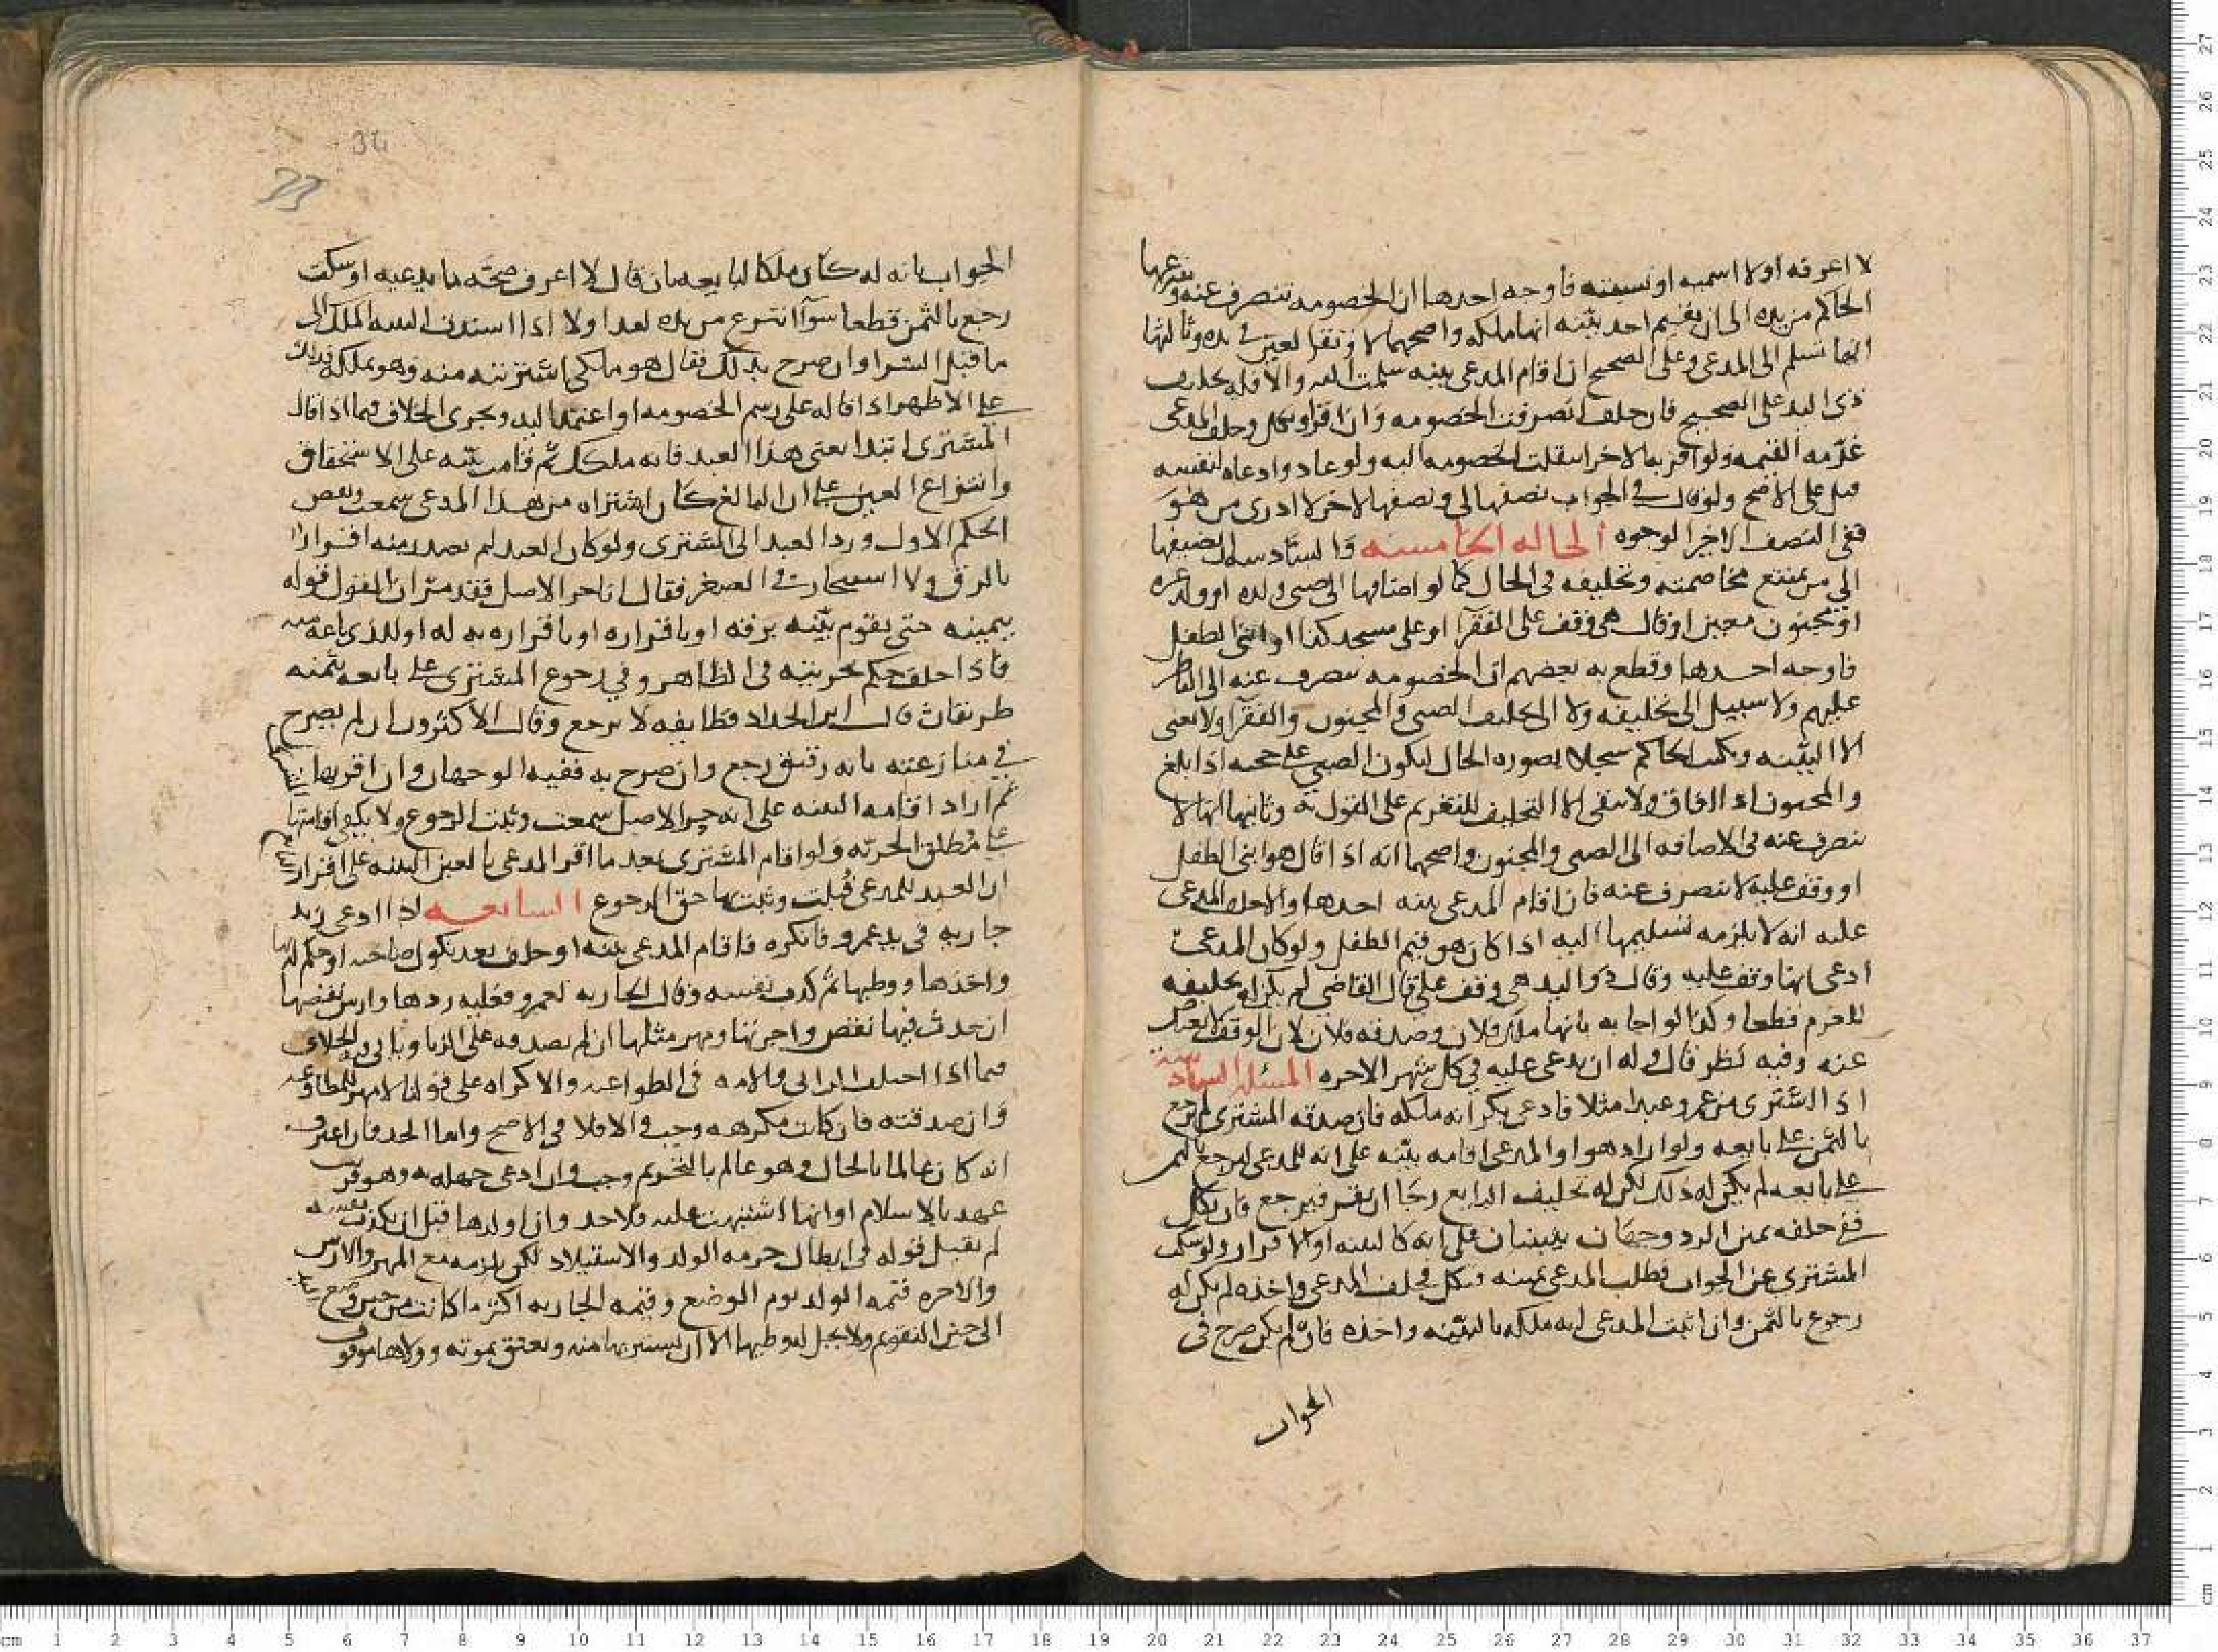 لا اعرفه او لا اسميه او نسيته فاوجه احدها ان الخصومه تنصرف عنه وينزعها
الحاكم من يده الى ان يقيم احد بينه انها ملكه واصحهما لا وتقرالعين في يده وثالثها
انها تسلم الى المدعى وعلى الصحيح ان اقام المدعى بينه سلمت اليه والا فله تحليف
ذى اليد على الصحيح فان حلف انصرفت الخصومه وان اقر او نكل وحلف المدعى
غرمه القيمه ولو اقر بها لاخر انتقلت الخصومه اليه ولو عاد وادعاه لنفسه
قبل على الاصح ولو قال في الجواب نصفها لى ونصفها لاخر لا ادرى من هو
ففى النصف الاخر الوجوه الحاله الخامسه والسادسه ان يضيفها
الى من يمتنع مخاصمته وتحليفه في الحال كما لو اضافها الى صبى ولده او ولد غيره
او مجنون معين او قال هى وقف على الفقرآ او على مسجد كذا او ابنى الطفل
فاوجه احدها وقطع به بعضهم ان الخصومه تنصرف عنه الى الناظر
عليهم ولا سبيل الى تحليفه ولا الى تحليف الصبى والمجنون والفقرا ولا يغنى
الا البينه ويكتب الحاكم سجلا بصوره الحال ليكون الصبى على حجته اذا بلغ
والمجنون اذا افاق ولا يبقى الا التحليف للتغريم على القول به وثانيها انها لا
تنصرف عنه في الاضافه الى الصبى والمجنون واصحهما انه اذا قال هو ابنى الطفل
او وقف عليه لا تنصرف عنه فان اقام المدعى بينه اخذها والا حلف المدعى
عليه انه لا يلزمه تسليمها اليه اذا كان هو قيم الطفل ولو كان المدعى
ادعى انها وقف عليه وقال ذو اليد هى وقف على قال القاضى لم يكن له تحليفه
للغرم قطعا وكذا لو اجابه بانها ملك فلان وصدقه فلان لان الوقف لا يعتاض
عنه وفيه نظر قال وله ان يدعى عليه في كل شهر الاجره المسئله السادسه
اذا اشترى من عمرو عبدا مثلا فادعى بكر انه ملكه فان صدقه المشترى لم يرجع
بالثمن على بايعه ولو اراد هو او المدعى اقامه بينه على انه للمدعى ليرجع بالثمن
على بايعه لم يكن له ذلك لكن له تحليف البايع رجا ان يقر فيرجع فان نكل
ففى حلفه يمين الرد وجهان يبنيان على انه كالبينه او الاقرار ولو سكت
المشترى عن الجواب فطلب المدعى يمينه فنكل فحلف المدعى واخذه لم يكن له
رجوع بالثمن وان اثبت المدعى انه ملكه بالبينه واخذه فان لم يكن صرح في
الجواب
34
33
الجواب بانه له كان ملكا لبايعه بان قال لا اعرف صحه ما يدعيه او سكت
رجع بالثمن قطعا سوآ انتزع من يده بعدا ولا اذا اسندت البينه الملك الى
ما قبل الشرا وان صرح بذلك فقال هو ملكى اشتريته منه وهو يملكه فكذلك
على الاظهر اذا قاله على رسم الخصومه او اعتمد اليد ويجرى الخلاف فيما اذا قال
المشترى ابتدا بعنى هذا العبد فانه ملكك ثم قامت بينه على الاستحقاق
وانتزاع العين على ان البايع كان اشتراه من هذا المدعى سمعت ونقض
الحكم الاول ورد العبد الى المشترى ولو كان العبد لم يصدر منه اقرار
بالرق ولا استيجار في الصغر فقال انا حر الاصل فقد مر ان القول قوله
بيمينه حتى تقوم بينه برقه او باقراره او باقراره به له او للذى باعه منه
فاذا حلف حكم بحريته في الظاهر وفي رجوع المشترى على بايعه بثمنه
طريقان قال ابن الحداد وطايفه لا يرجع وقال الاكثرون ان لم يصرح
في منازعته بانه رقيق رجع وان صرح به ففيه الوجهان وان اقر بها
ثم اراد اقامه البينه على انه حر الاصل سمعت وثبت الرجوع ولا يكفى اقامتها
على مطلق الحريه ولو اقام المشترى بعد ما اقر المدعى بالعين البينه على اقرار
ان العبد للمدعى قبلت وثبت بها حق الرجوع السابعه اذا ادعى زيد
جاريه في يد عمرو فانكره فاقام المدعى بينه او حلف بعد نكول صاحبه وحكم له بها
واخذها ووطيها ثم كذب نفسه وقال الجاريه لعمرو فعليه ردها وارش نقصها
ان حدث فيها نقص واجرتها ومهر مثلها ان لم تصدقه على الزنا وياتى فيه الخلاف
فيما اذا اختلف الزانى والامه في الطواعيه والاكراه على قولنا لا مهر للمطاوعه
وان صدقته فان كانت مكرهه وجب والا فلا في الاصح واما الحد فان اعترف
انه كان عالما بالحال وهو عالم بالتحريم وجب وان ادعى جهله به وهو قريب
عهد بالاسلام او انها اشتبهت عليه فلا حد وان اولدها قبل ان يكذب نفسه
لم يقبل قوله في ابطال حرمه الولد والاستيلاد لكن يلزمه مع المهر والارش
والاجره قيمه الولد يوم الوضع وقيمه الجاريه اكثر ما كانت من حين وضع يده
الى حين التقويم ولا يحل له وطيها الا ان يشتريها منه وتعتق بموته وولاها موقوف